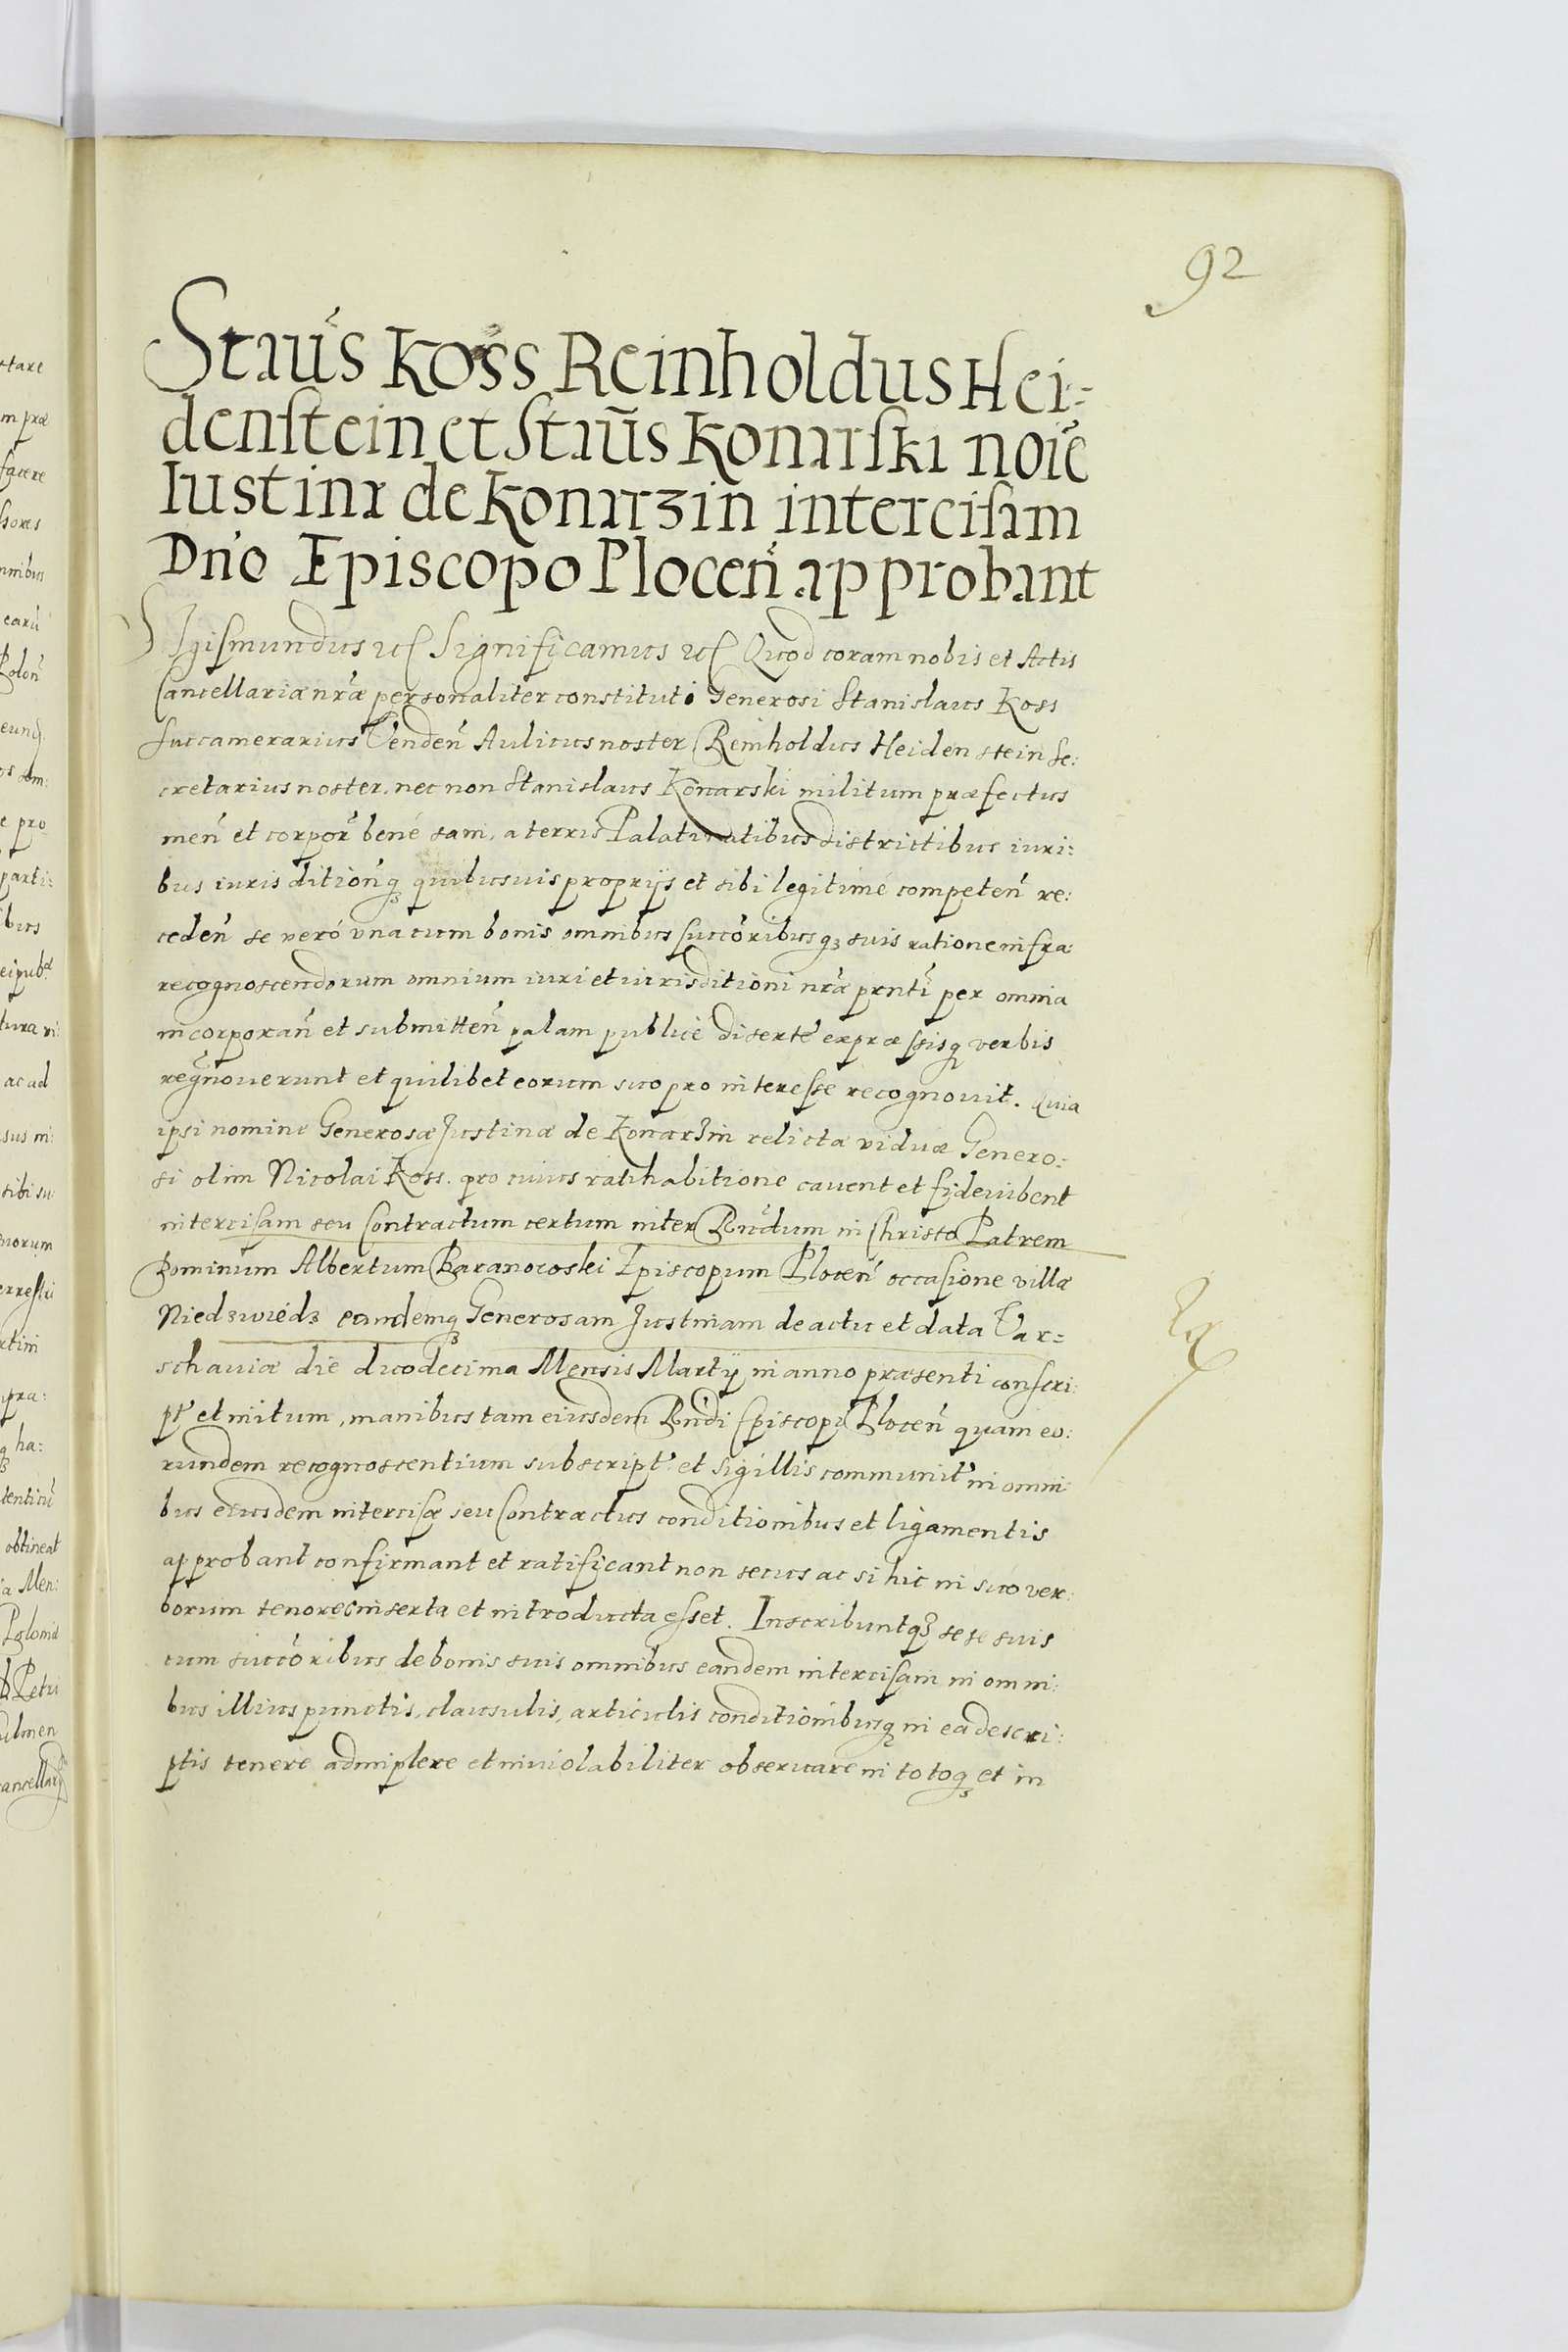 92
Staũs Koss Reinholdus Hei-
denstein et Staũs Konarski noiẽ
Iustinæ de Konarzin intercisam
Dño Episcopo Plocen̄ approbant
Sigismundus etc Significamus etc Quod coram nobis et Actis
Cancellariæ nr̃æ personaliter constituti Generosi Stanislaus Koss
succamerarius Venden̄ Aulicus noster Reinholdus Heidenstein se:
cretarius noster. nec non Stanislaus Konarski militum præfectus
men̄ et corpor̄ bené sani, a terris Palatinatibus districtibus iuri:
bus iurisdition̄q quibusuis proprijs et sibi legitimé competen̄ re:
ceden̄ se veró vna cum bonis omnibus succõribusq suis ratione infra
recognoscendorum omnium iuri et iurisditioni nr̃æ pr̃nti per omnia
incorporan̄ et submitten̄ palam publicè disertè expræssisq verbis
regnoverunt et quilibet eorum suo pro interesse recognovit. Quia
ipsi nomine Generosæ Justinæ de Konarzin relictæ viduæ Genero:
si olim Nicolai Koss. pro cuius ratihabitione cavent et fideiubent
intercisam seu Contractum certum inter Rñdum in Christo Patrem
Dominum Albertum Baranowski Episcopum Plocen̄ occasione villæ
Niedzwiédz eandemq Generosam Justinam de actu et data Var=
schauiæ die duodecima Mensis Martij in anno præsenti conscri:
pt̃ et initum, manibus tam eiusdem Rñdi Episcopi Plocen̄ quam eo:
rundem recognoscentium subscript̃ et sigillis communit̃ in omni
bus eiusdem intercisæ seu Contractus conditionibus et ligamentis
approbant confirmant et ratificant non secus ac si hic in suo ver:
borum tenore inserta et introducta esset. Inscribuntq sese suis
cum succõribus de bonis suis omnibus eandem intercisam in omni:
bus illius punctis, clausulis, articulis conditionibusq in ea descri:
ptis tenere adimplere et inviolabiliter obseruare in totoq et in